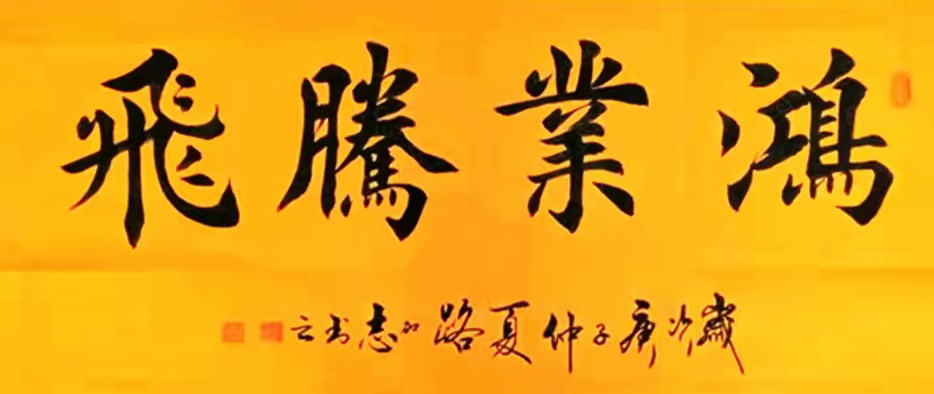 鴻業騰飛
歲次庚子仲夏路志书